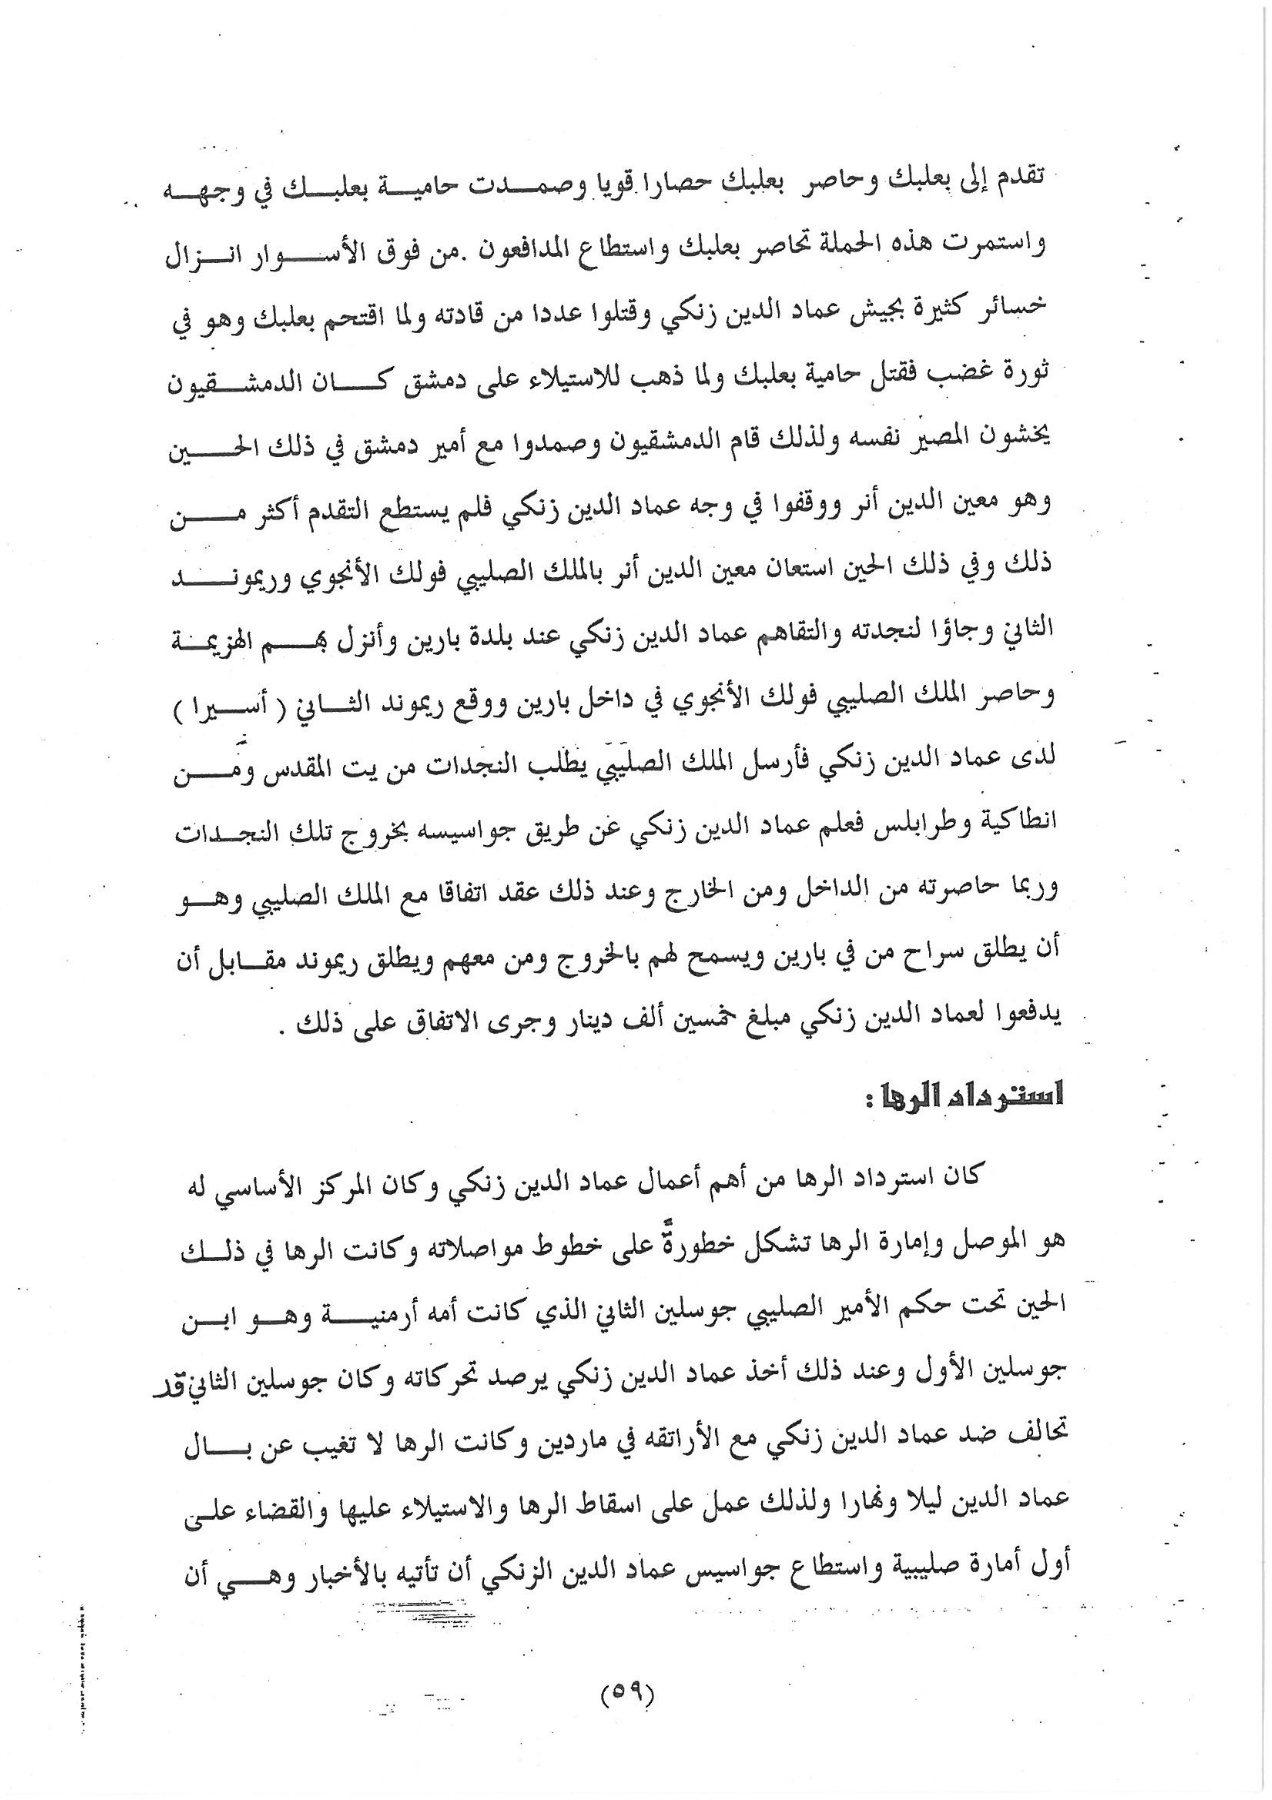 تقدم إلى بعلبك وحاصر بعلبك حصارا قويا وصمدت حامية بعلبك في وجهه
واستمرت هذه الحملة تحاصر بعلبك واستطاع المدافعون .من فوق الأسوار انزال
خسائر كثيرة بجيش عماد الدين زنكي وقتلوا عددا من قادته ولما اقتحم بعلبك وهو في
ثورة غضب فقتل حامية بعلبك ولما ذهب للاستيلاء على دمشق كان الدمشقيون
يخشون المصير نفسه ولذلك قام الدمشقيون وصمدوا مع أمير دمشق في ذلك الحين
وهو معين الدين أنر ووقفوا في وجه عماد الدين زنكي فلم يستطع التقدم أكثر من
ذلك وفي ذلك الحين استعان معين الدين أنر بالملك الصليبي فولك الأنجوي وريموند
الثاني وجاؤا لنجدته والتقاهم عماد الدين زنكي عند بلدة بارين وأنزل بهم الهزيمة
وحاصر الملك الصليبي فولك الأنجوي في داخل بارين ووقع ريموند الثاني ( أسيرا )
لدى عماد الدين زنكي فأرسل الملك الصليبي يطلب النجدات من يت المقدس ومن
انطاكية وطرابلس فعلم عماد الدين زنكي عن طريق جواسيسه بخروج تلك النجدات
وربما حاصرته من الداخل ومن الخارج وعند ذلك عقد اتفاقا مع الملك الصليبي وهو
أن يطلق سراح من في بارين ويسمح لهم بالخروج ومن معهم ويطلق ريموند مقابل أن
يدفعوا لعماد الدين زنكي مبلغ خمسين ألف دينار وجرى الاتفاق على ذلك .
استرداد الرها :
كان استرداد الرها من أهم أعمال عماد الدين زنكي وكان المركز الأساسي له
هو الموصل وإمارة الرها تشكل خطورةً على خطوط مواصلاته وكانت الرها في ذلك
الحين تحت حكم الأمير الصليبي جوسلين الثاني الذي كانت أمه أرمنية وهو ابن
جوسلين الأول وعند ذلك أخذ عماد الدين زنكي يرصد تحركاته وكان جوسلين الثاني قد
تحالف ضد عماد الدين زنكي مع الأراتقه في ماردين وكانت الرها لا تغيب عن بال
عماد الدين ليلا ونهارا ولذلك عمل على اسقاط الرها والاستيلاء عليها والقضاء على
أول أمارة صليبية واستطاع جواسيس عماد الدين الزنكي أن تأتيه بالأخبار وهي أن
(٥٩)